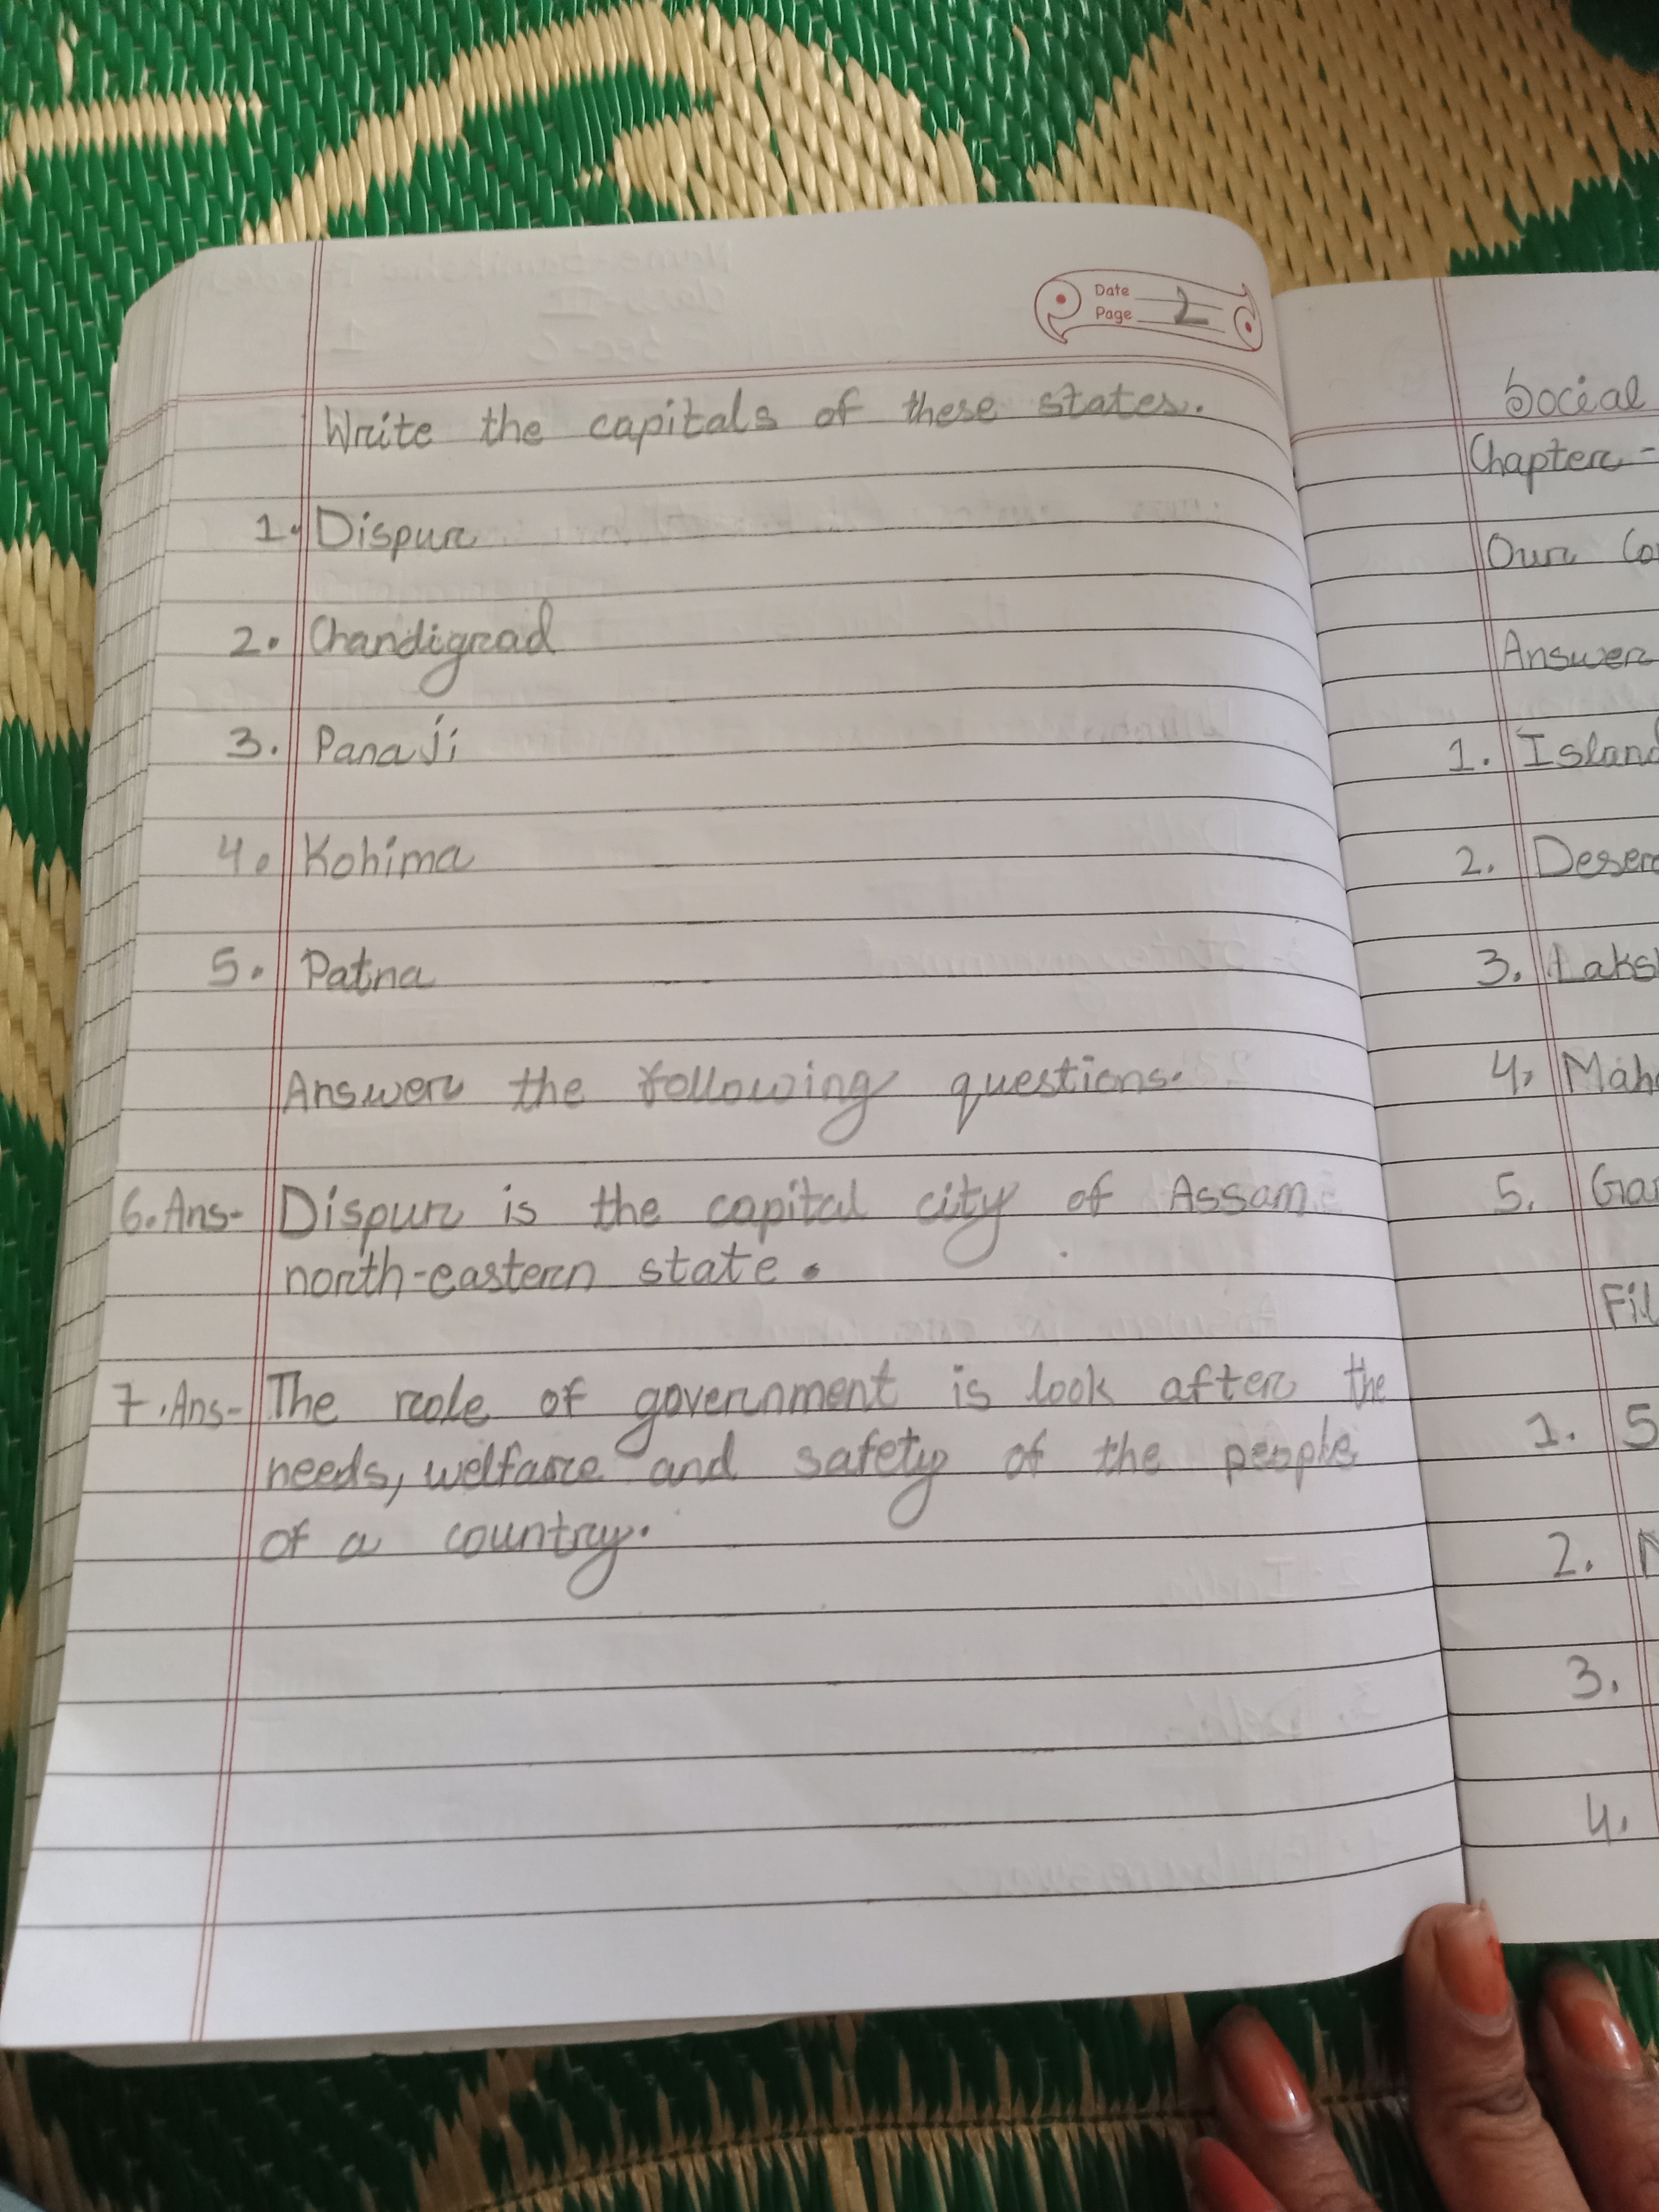 Date
Page 2
Write the capitals of these states.
1. Dispur
2. Chandigrad
3. Panaji
4. Kohima
5. Patna
Answer the following questions.
6. Ans- Dispur is the capital city of Assam
north-eastern state.
7. Ans- The role of government is look after the
needs, welfare and safety of the people
of a country.
Social
Chapter -
Our Co
Answer
1. Island
2. Deser
3. Laksh
4, Maha
5. Gan
Fil
1. 5
2. N
3.
4.